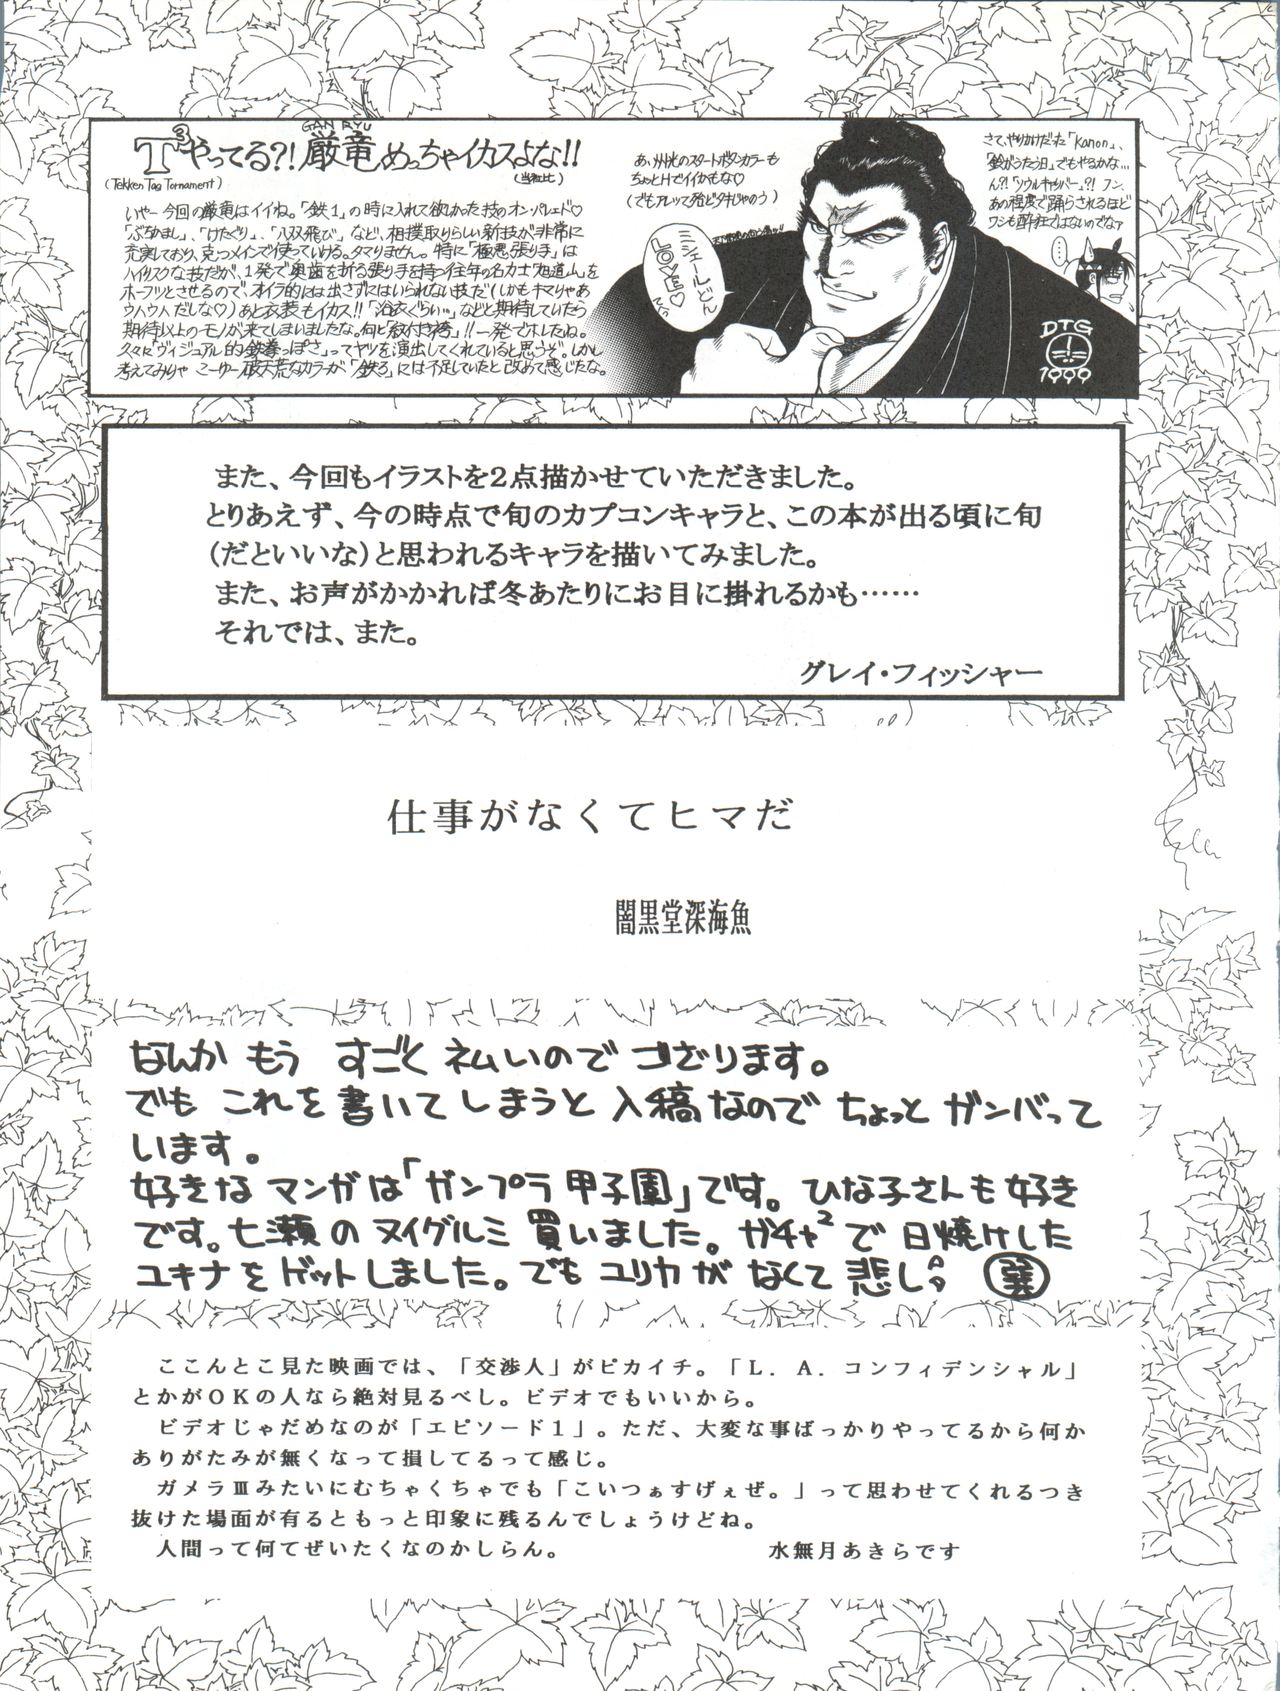 GAN RYU
T³やってる?! 厳竜めっちゃイカスよな!!
(Tekken Tag Tornament)
(当社比)
いやー今回の厳竜はイイね。「鉄1」の時に入れて欲しかった技のオンパレード♡
「ぶちかまし」、「けたぐり」、「八双飛び」など、相撲取りらしい新技が非常に
充実しており、克つメインで使っていける。タマりません。特に「極悪張り手」は
ハイリスクな技だが、1発で奥歯を折る張り手を持つ往年の名力士「旭道山」を
ホーフツとさせるので、オイラ的には出さずにはいられない技だ(しかもキマりゃあ
ウハウハだしな♡)あと衣装もイカス!!「浴衣ぐらい…」などと期待していたら
期待以上のモノが来てしまいましたな。何と「紋付き袴」!! 一発でホレたね。
久々に「ヴィジュアル的鉄拳っぽさ」ってヤツを演出してくれていると思うぞ。しかし
考えてみりゃ こーゆー破天荒なカラーが「鉄3」には不足していたと改めて感じたな。
あ、州光のスタートボタンカラーも
ちょっとHでイイかもな♡
(でもアレッて殆どタキじゃのう)
ミシェールさん
LOVE♡
さて、やりかけだった「Kanon」、
「鈴がうたう日」でもやるかな…
ん?!「ソウルキャリバー」?! フン、
あの程度で踊らされるほど
ワシも酔狂ではないのでなァ
……
DTG
1999
また、今回もイラストを2点描かせていただきました。
とりあえず、今の時点で旬のカプコンキャラと、この本が出る頃に旬
(だといいな)と思われるキャラを描いてみました。
また、お声がかかれば冬あたりにお目に掛れるかも……
それでは、また。
グレイ・フィッシャー
仕事がなくてヒマだ
闇黒堂深海魚
なんか もう すごく ネムいので ござります。
でも これを 書いて しまうと 入稿なので ちょっと ガンバって
います。
好きな マンガは「ガンプラ 甲子園」です。ひな子さんも 好き
です。七瀬の ヌイグルミ 買いました。ガチャ²で 日焼けした
ユキナを ゲットしました。でも ユリカが なくて 悲し。
ここんとこ見た映画では、「交渉人」がピカイチ。「L．A．コンフィデンシャル」
とかがOKの人なら絶対見るべし。ビデオでもいいから。
ビデオじゃだめなのが「エピソード1」。ただ、大変な事ばっかりやってるから何か
ありがたみが無くなって損してるって感じ。
ガメラⅢみたいにむちゃくちゃでも「こいつぁすげぇぜ。」って思わせてくれるつき
抜けた場面が有るともっと印象に残るんでしょうけどね。
人間って何てぜいたくなのかしらん。 水無月あきらです